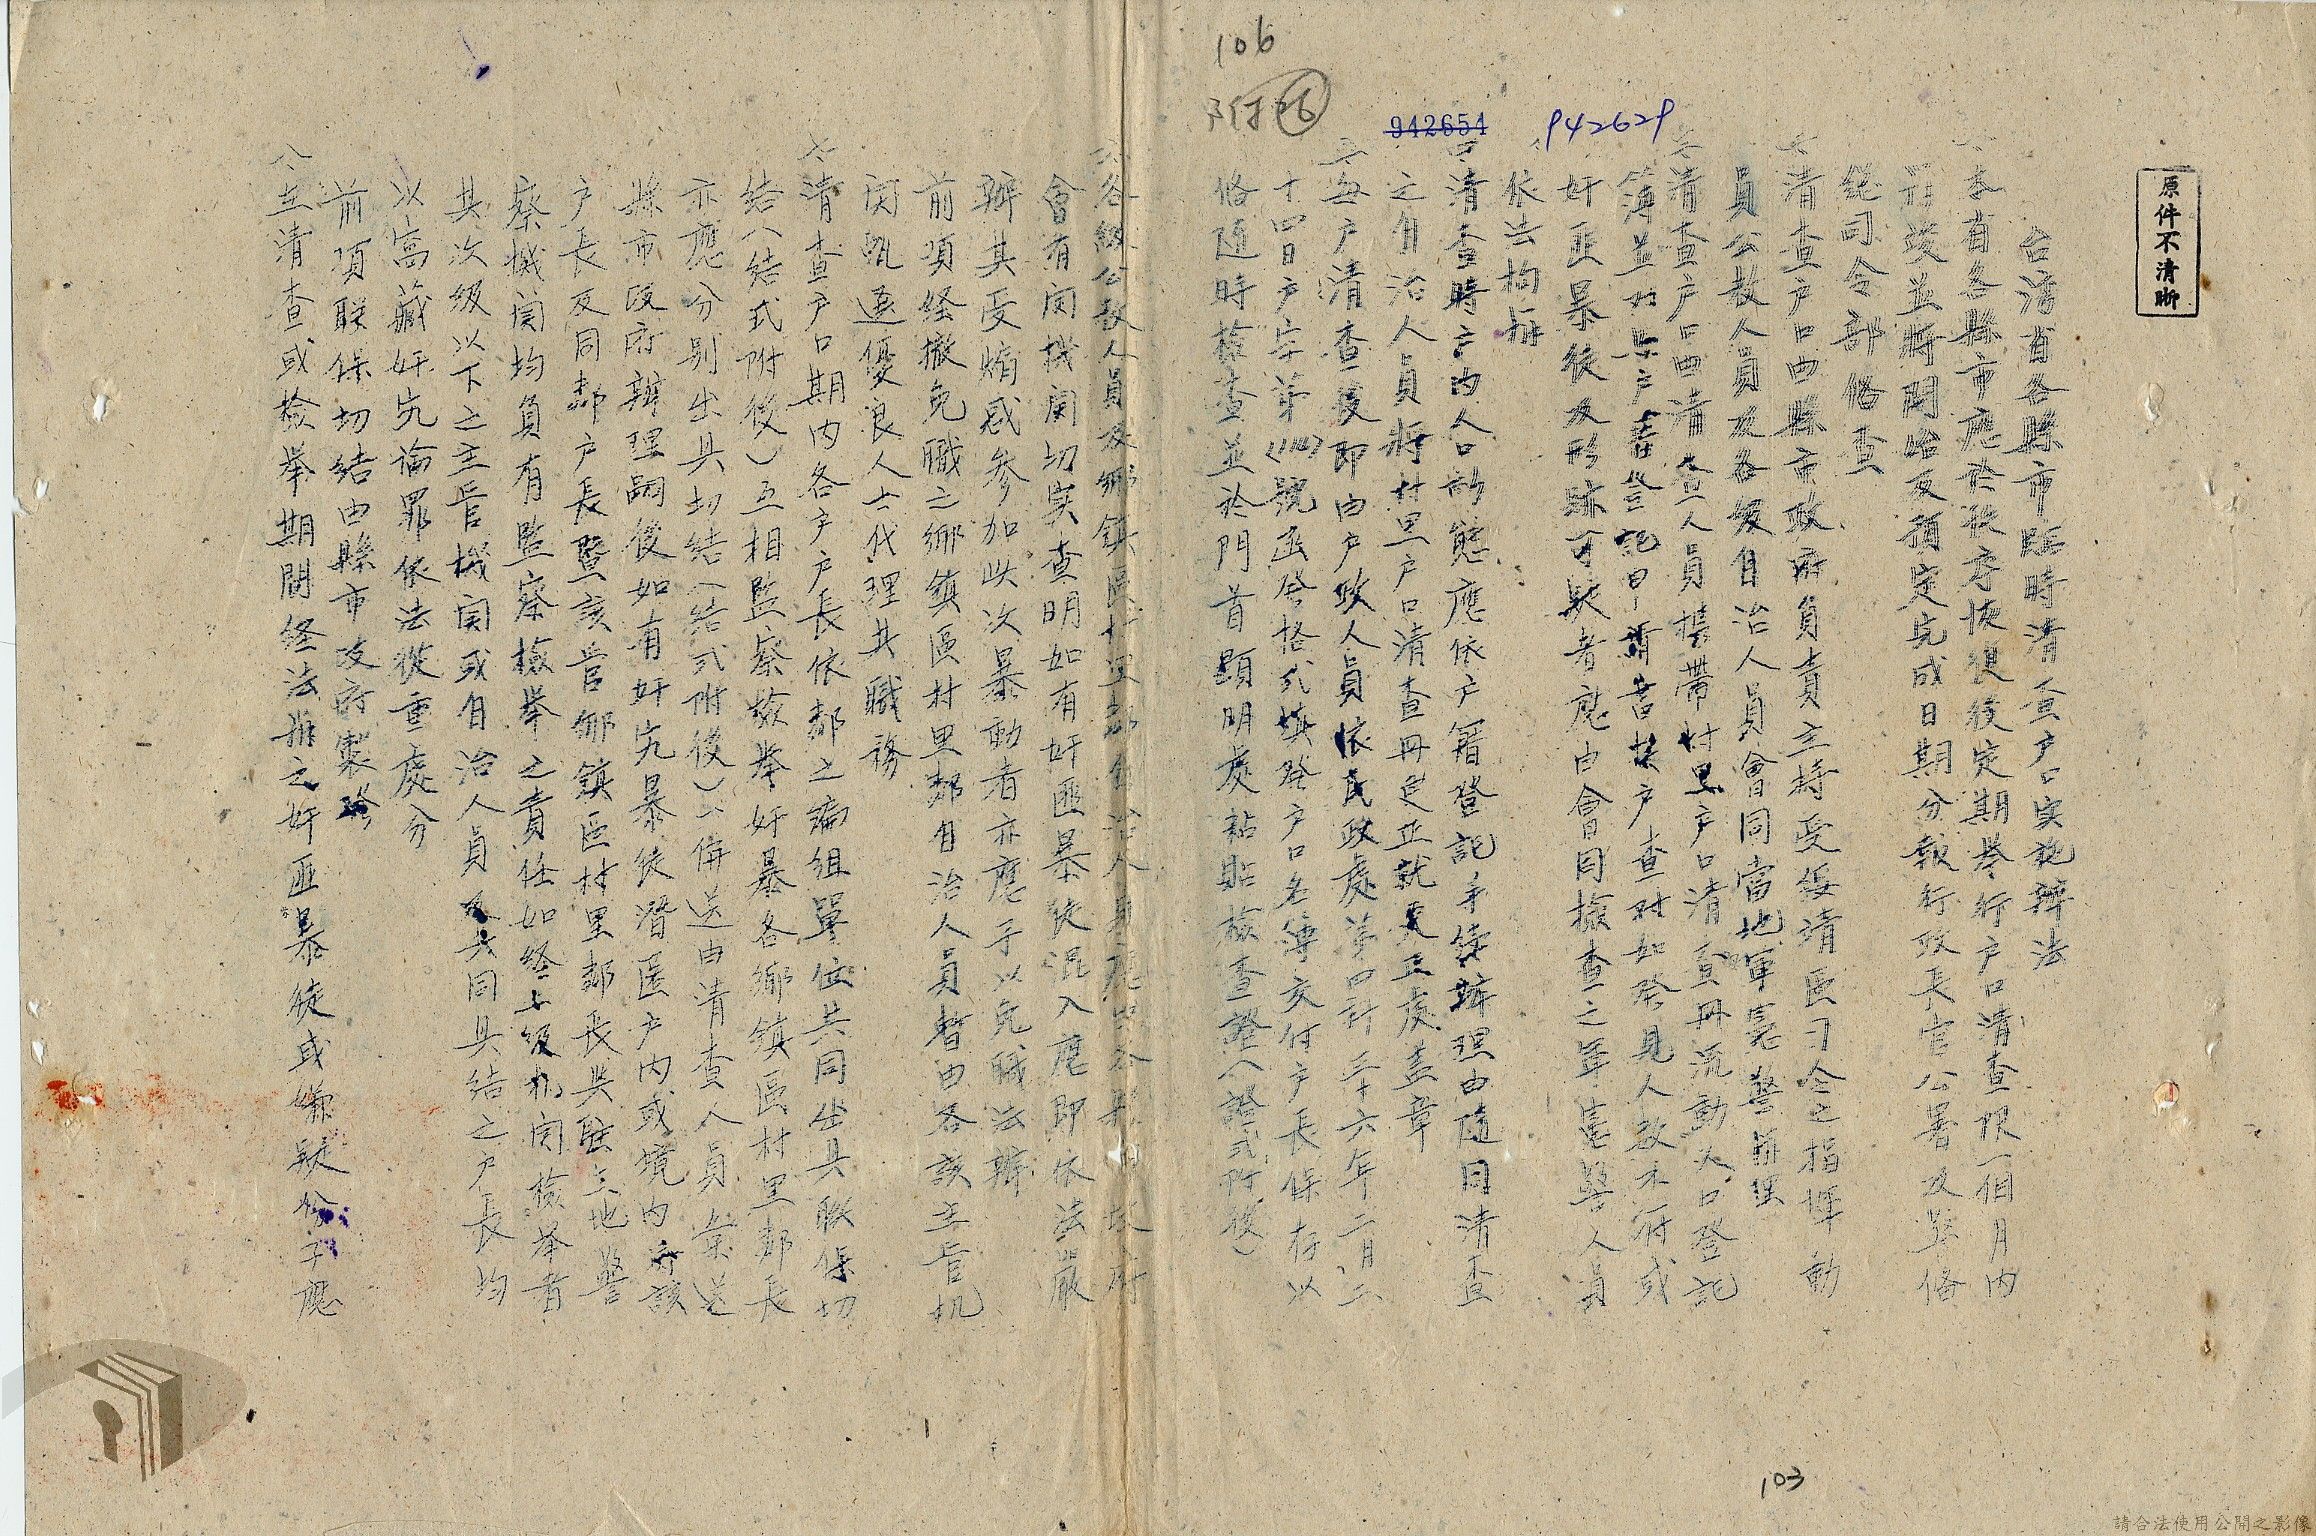 原件不清晰
106
附件26
942654
942629
台灣省各縣市臨時清查户口实施辦法
一、本省各縣市應於秩序恢復後定期举行户口清查限一個月内
竣並將開始及預定完成日期分報行政長官公署及警俻
總司令部俻查
二、清查户口由縣市政府負責主持受綏靖區司令之指揮動
員公教人員及各级自治人員會同當地軍憲警辦理
三、清查户口由清查人員携帶村里户口清查册流動人口登記
簿並如户查对如發見人数不符或
奸匪暴徒及形跡可疑者應由會同檢查之軍憲警人員
依法拘捕
四、清查時户内人口動態應依户籍登記手續辦理由随同清查
之自治人員將村里户口清查册更正就更正處盖章
五、每户清查後即由户政人員依民政處第四科三十六年二月二
十四日户字第(114)號函發格式填發户口名簿交付户長保存以
俻随時檢查並於門首顕明處粘貼檢查證（證式附後）
六、各級公教人員及鄉鎮區村里鄰自治人員應由各縣市政府
會有関機関切实查明如有奸匪暴徒混入應即依法嚴
辦其受煽惑参加此次暴動者亦應予以免職法辦
前項经撤免職之鄉鎮區村里鄰自治人員暫由各該主官机
関甄選優良人士代理其職務
七、清查户口期内各户户長依鄰之编组單位共同出具聯保切
结（结式附後）互相監察檢举奸暴各鄉鎮區村里鄰長
亦應分别出具切结（结式附後）以俻送由清查人員彙送
縣市政府辦理嗣後如有奸宄暴徒潛匿户内或境内所該
户長及同鄰户長暨該管鄉鎮區村里鄰長與駐在地警
察機関均負有監察檢举之責任如经上级机関檢举者
其次级以下之主官機関或自治人員及共同具结之户長均
以窩藏奸宄論罪依法從重處分
前項聯保切结由縣市政府製發
八、在清查或檢举期間经法捕之奸匪暴徒或嫌疑份子應
103
請合法使用公開之影像